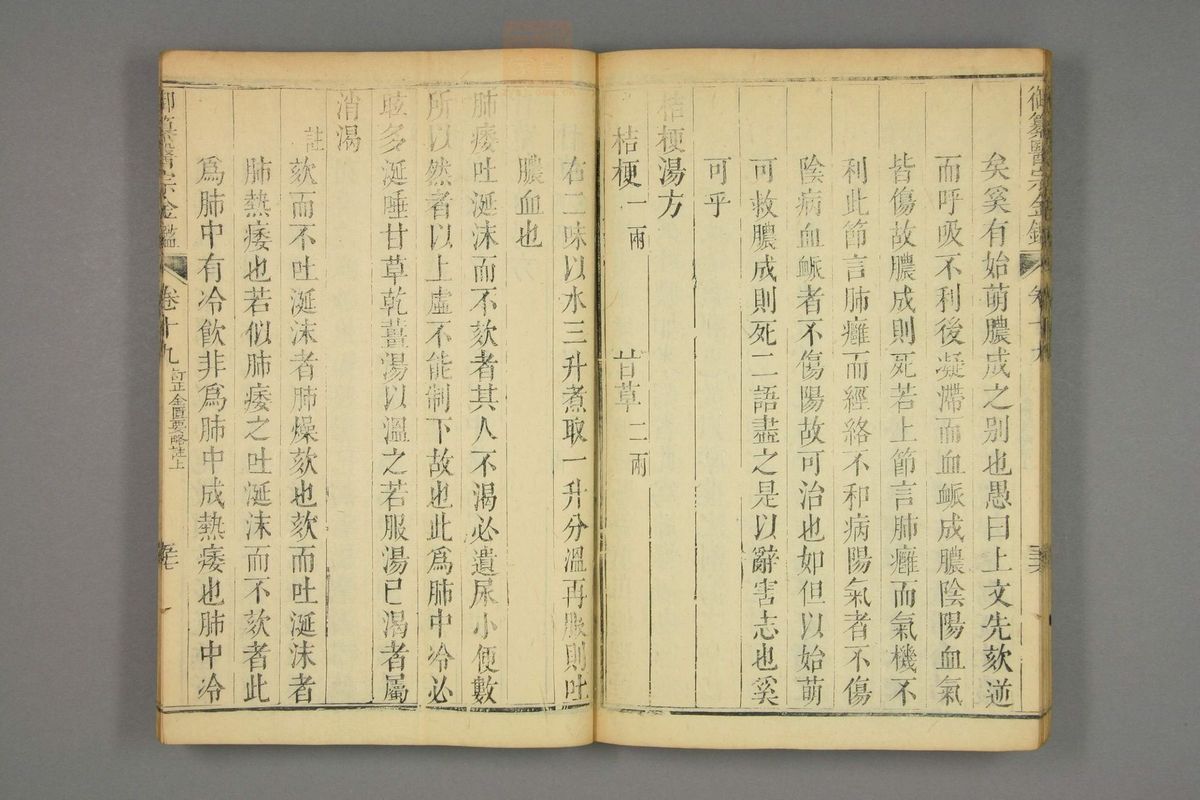 御纂醫宗金鑑 卷十九
矣奚有始萌膿成之別也愚曰上文先欬逆
而呼吸不利後凝滯而血衇成膿陰陽血氣
皆傷故膿成則死若上節言肺癰而氣機不
利此節言肺癰而經絡不和病陽氣者不傷
陰病血衇者不傷陽故可治也如但以始萌
可救膿成則死二語盡之是以辭害志也奚
可乎
桔梗湯方
桔梗一兩 甘草二兩
右二味以水三升煮取一升分溫再服則吐
膿血也
肺痿吐涎沫而不欬者其人不渴必遺尿小便數
所以然者以上虛不能制下故也此為肺中冷必
眩多涎唾甘草乾薑湯以溫之若服湯已渴者屬
消渴
註 欬而不吐涎沫者肺燥欬也欬而吐涎沫者
肺熱痿也若似肺痿之吐涎沫而不欬者此
為肺中有冷飲非為肺中成熱痿也肺中冷
御纂醫宗金鑑 卷十九 訂正金匱要略註上